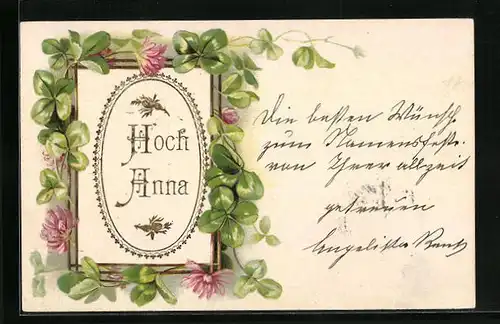 Hoch
Anna
Die besten Wünsche
zum Namensfeste
von Ihrer allzeit
getreuen
Angelika